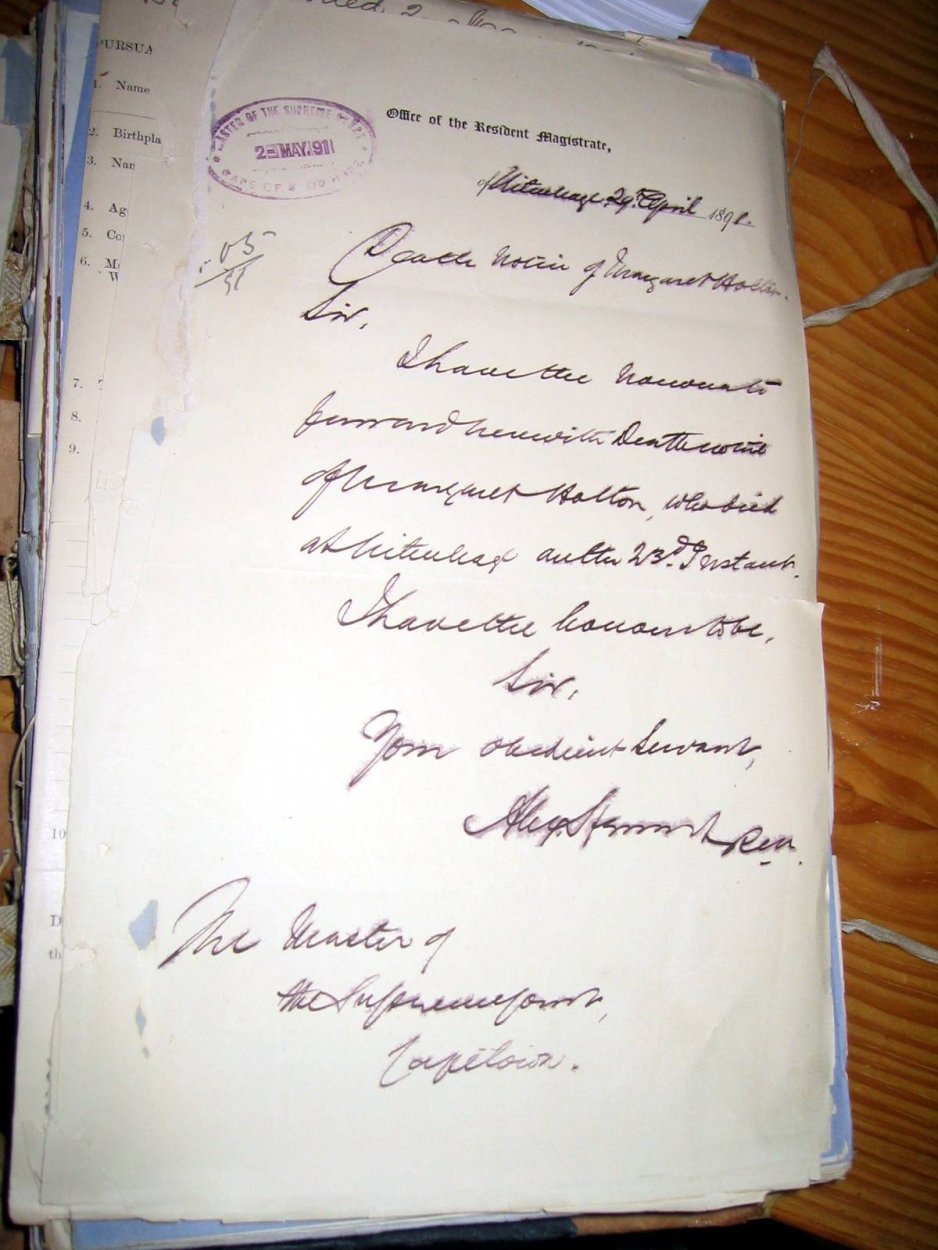 PURSUA
1. Name
2. Birthpla
3. Nam
4. Ag
5. Co
6.
W
7.
8.
9.
10
D
th
MASTER OF THE SUPREME COURT
2 MAY.91
CAPE OF GOOD HOPE
Office of the Resident Magistrate,
of Uitenhage 29th April 1891.
Death Notice of Margaret Holton.
Sir,
I have the honour to
forward herewith Death notice
of Margaret Holton, who died
at Uitenhage on the 23rd Instant.
I have the honour to be,
Sir,
Your obedient Servant,
Alex Stewart R.M.
The Master of
the Supreme Court,
Capetown.